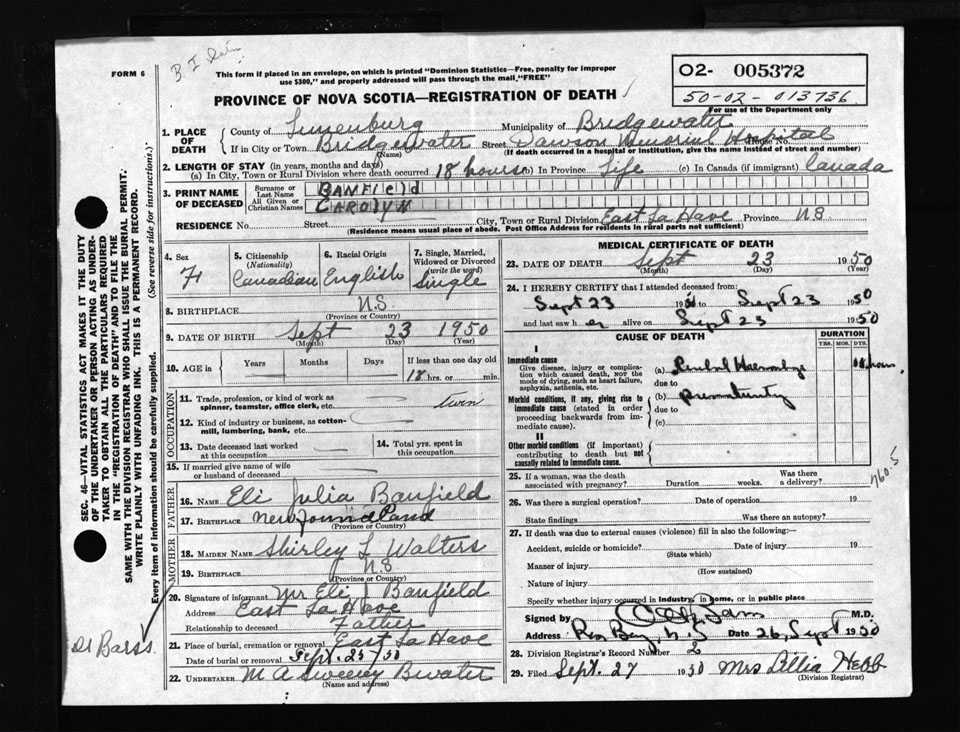 FORM 6
This form if placed in an envelope, on which is printed "Dominion Statistics—Free, penalty for improper
use $300," and properly addressed will pass through the mail, "FREE"
PROVINCE OF NOVA SCOTIA—REGISTRATION OF DEATH
02- 005372
50-02-013736
For use of the Department only
1. PLACE OF DEATH
County of Lunenburg Municipality of Bridgewater
If in City or Town Bridgewater Street Dawson Memorial Hospital House No.
(Name) (If death occurred in a hospital or institution, give the name instead of street and number)
2. LENGTH OF STAY (in years, months and days)
(a) In City, Town or Rural Division where death occurred 18 hours (b) In Province Life (c) In Canada (if immigrant) Canada
3. PRINT NAME OF DECEASED
Surname or Last Name BANFIELD
All Given or Christian Names CAROLYN
RESIDENCE No. Street City, Town or Rural Division East La Have Province N.S
(Residence means usual place of abode. Post Office Address for residents in rural parts not sufficient)
4. Sex F
5. Citizenship (Nationality) Canadian
6. Racial Origin English
7. Single, Married, Widowed or Divorced (write the word) Single
8. BIRTHPLACE N.S.
(Province or Country)
9. DATE OF BIRTH Sept 23 1950
(Month) (Day) (Year)
10. AGE in Years Months Days If less than one day old
18 hrs. or min.
OCCUPATION
11. Trade, profession, or kind of work as spinner, teamster, office clerk, etc. twin
12. Kind of industry or business, as cotton-mill, lumbering, bank, etc.
13. Date deceased last worked at this occupation
14. Total yrs. spent in this occupation
15. If married give name of wife or husband of deceased
FATHER
16. NAME Eli Julia Banfield
17. BIRTHPLACE Newfoundland
(Province or Country)
MOTHER
18. MAIDEN NAME Shirley L Walters
19. BIRTHPLACE N.S
(Province or Country)
20. Signature of informant Mr Eli J Banfield
Address East La Have
Relationship to deceased Father
21. Place of burial, cremation or removal East La Have
Date of burial or removal Sept. 25/50
22. UNDERTAKER M A Sweeny Bwater
(Name and address)
MEDICAL CERTIFICATE OF DEATH
23. DATE OF DEATH Sept 23 1950
(Month) (Day) (Year)
24. I HEREBY CERTIFY that I attended deceased from:
Sept 23 19 to Sept 23 1950
and last saw h er alive on Sept 23 1950
CAUSE OF DEATH
DURATION
YRS. MOS. DYS.
I
Immediate cause
Give disease, injury or complication which caused death, not the mode of dying, such as heart failure, asphyxia, asthenia, etc.
(a) 18 hours
due to
Morbid conditions, if any, giving rise to immediate cause (stated in order proceeding backwards from immediate cause).
(b) prematurity
due to
(c)
II
Other morbid conditions (if important) contributing to death but not causally related to immediate cause.
760.5
25. If a woman, was the death associated with pregnancy? Duration weeks. Was there a delivery?
26. Was there a surgical operation? Date of operation 19
State findings Was there an autopsy?
27. If death was due to external causes (violence) fill in also the following:
Accident, suicide or homicide? Date of injury 19
(State which)
Manner of injury
(How sustained)
Nature of injury
Specify whether injury occurred in industry, in home, or in public place
Signed by M.D.
Address Date 26, Sept 1950
28. Division Registrar's Record Number 2
29. Filed Sept. 27 1950 Mrs Lillia Hebb
(Division Registrar)
SEC. 46—VITAL STATISTICS ACT MAKES IT THE DUTY
OF THE UNDERTAKER OR PERSON ACTING AS UNDER-
TAKER TO OBTAIN ALL THE PARTICULARS REQUIRED
IN THE "REGISTRATION OF DEATH" AND TO FILE THE
SAME WITH THE DIVISION REGISTRAR WHO SHALL ISSUE THE BURIAL PERMIT.
WRITE PLAINLY WITH UNFADING INK. THIS IS A PERMANENT RECORD.
Every item of information should be carefully supplied. (See reverse side for instructions.)
Barss